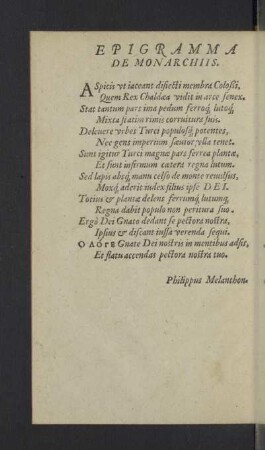 EPIGRAMMA
DE MONARCHIIS.
ASpitis vt iaceant disiecti membra Colossi,
Quem Rex Chaldæa vidit in arce senex.
Stat tantum pars ima pedum ferroq́ lutoq́,
Mixta statim nimis corruitura suit.
Deleuere vrbes Turci populosq́ potentes,
Nec gens imperium sæuior vlla tenet.
Sunt igitur Turci magna pars ferrea planta,
Et sunt infirmum cætera regna lutum.
Sed lapis absq́ manu celso de monte reuulsus,
Moxq́ aderit iudex filius ipse DEI.
Totius & plantæ delens ferrumq́ lutumq́
Regna dabit populo non peritura suo.
Ergo Dei Gnato dedant se pectora nostra,
Ipsius & discant iussa verenda sequi.
Ο ΛΟΓΕ Gnate Dei nostris in mentibus adsis,
Et flatu accendas pectora nostra tuo.
Philippus Melanthon.